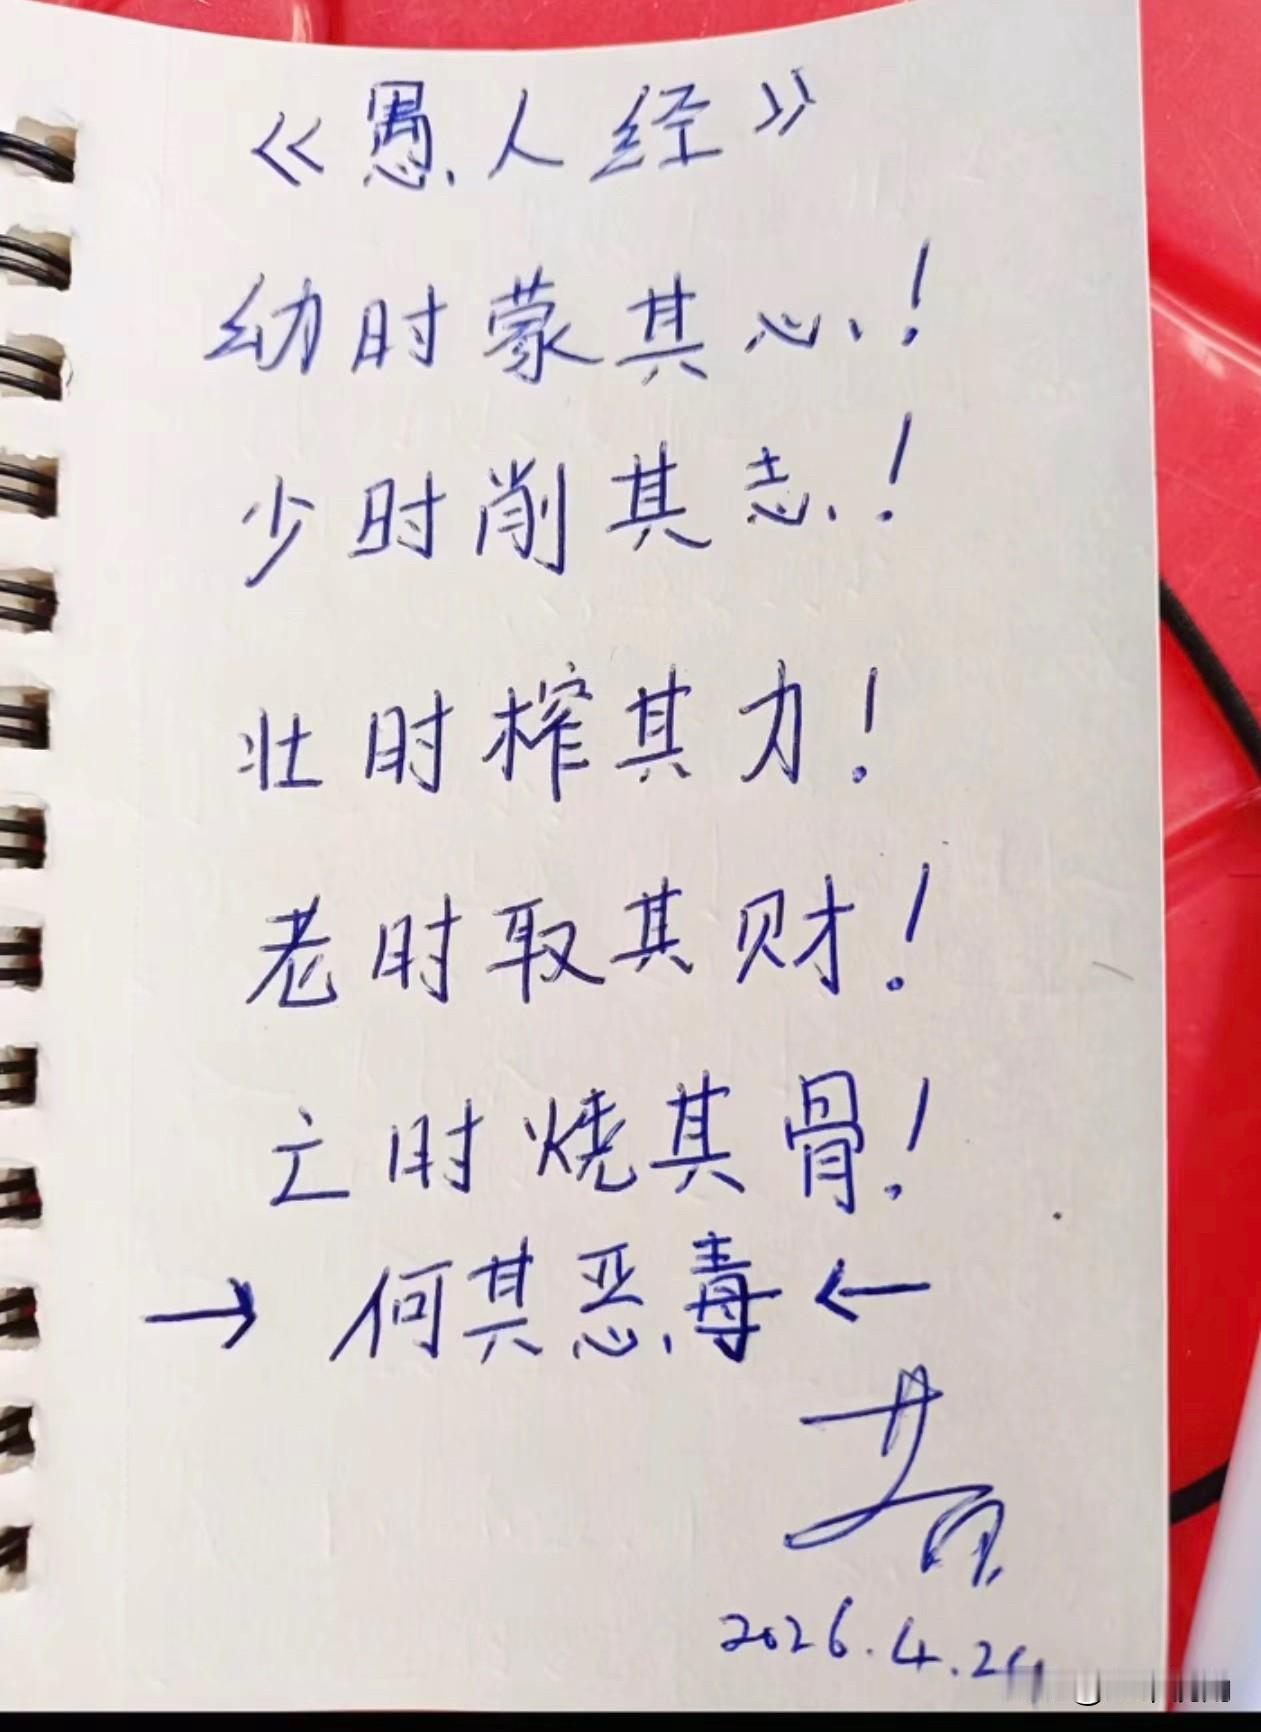 《愚人经》
幼时蒙其心!
少时削其志!
壮时榨其力!
老时取其财!
亡时烧其骨!
→何其恶毒←
2026.4.29